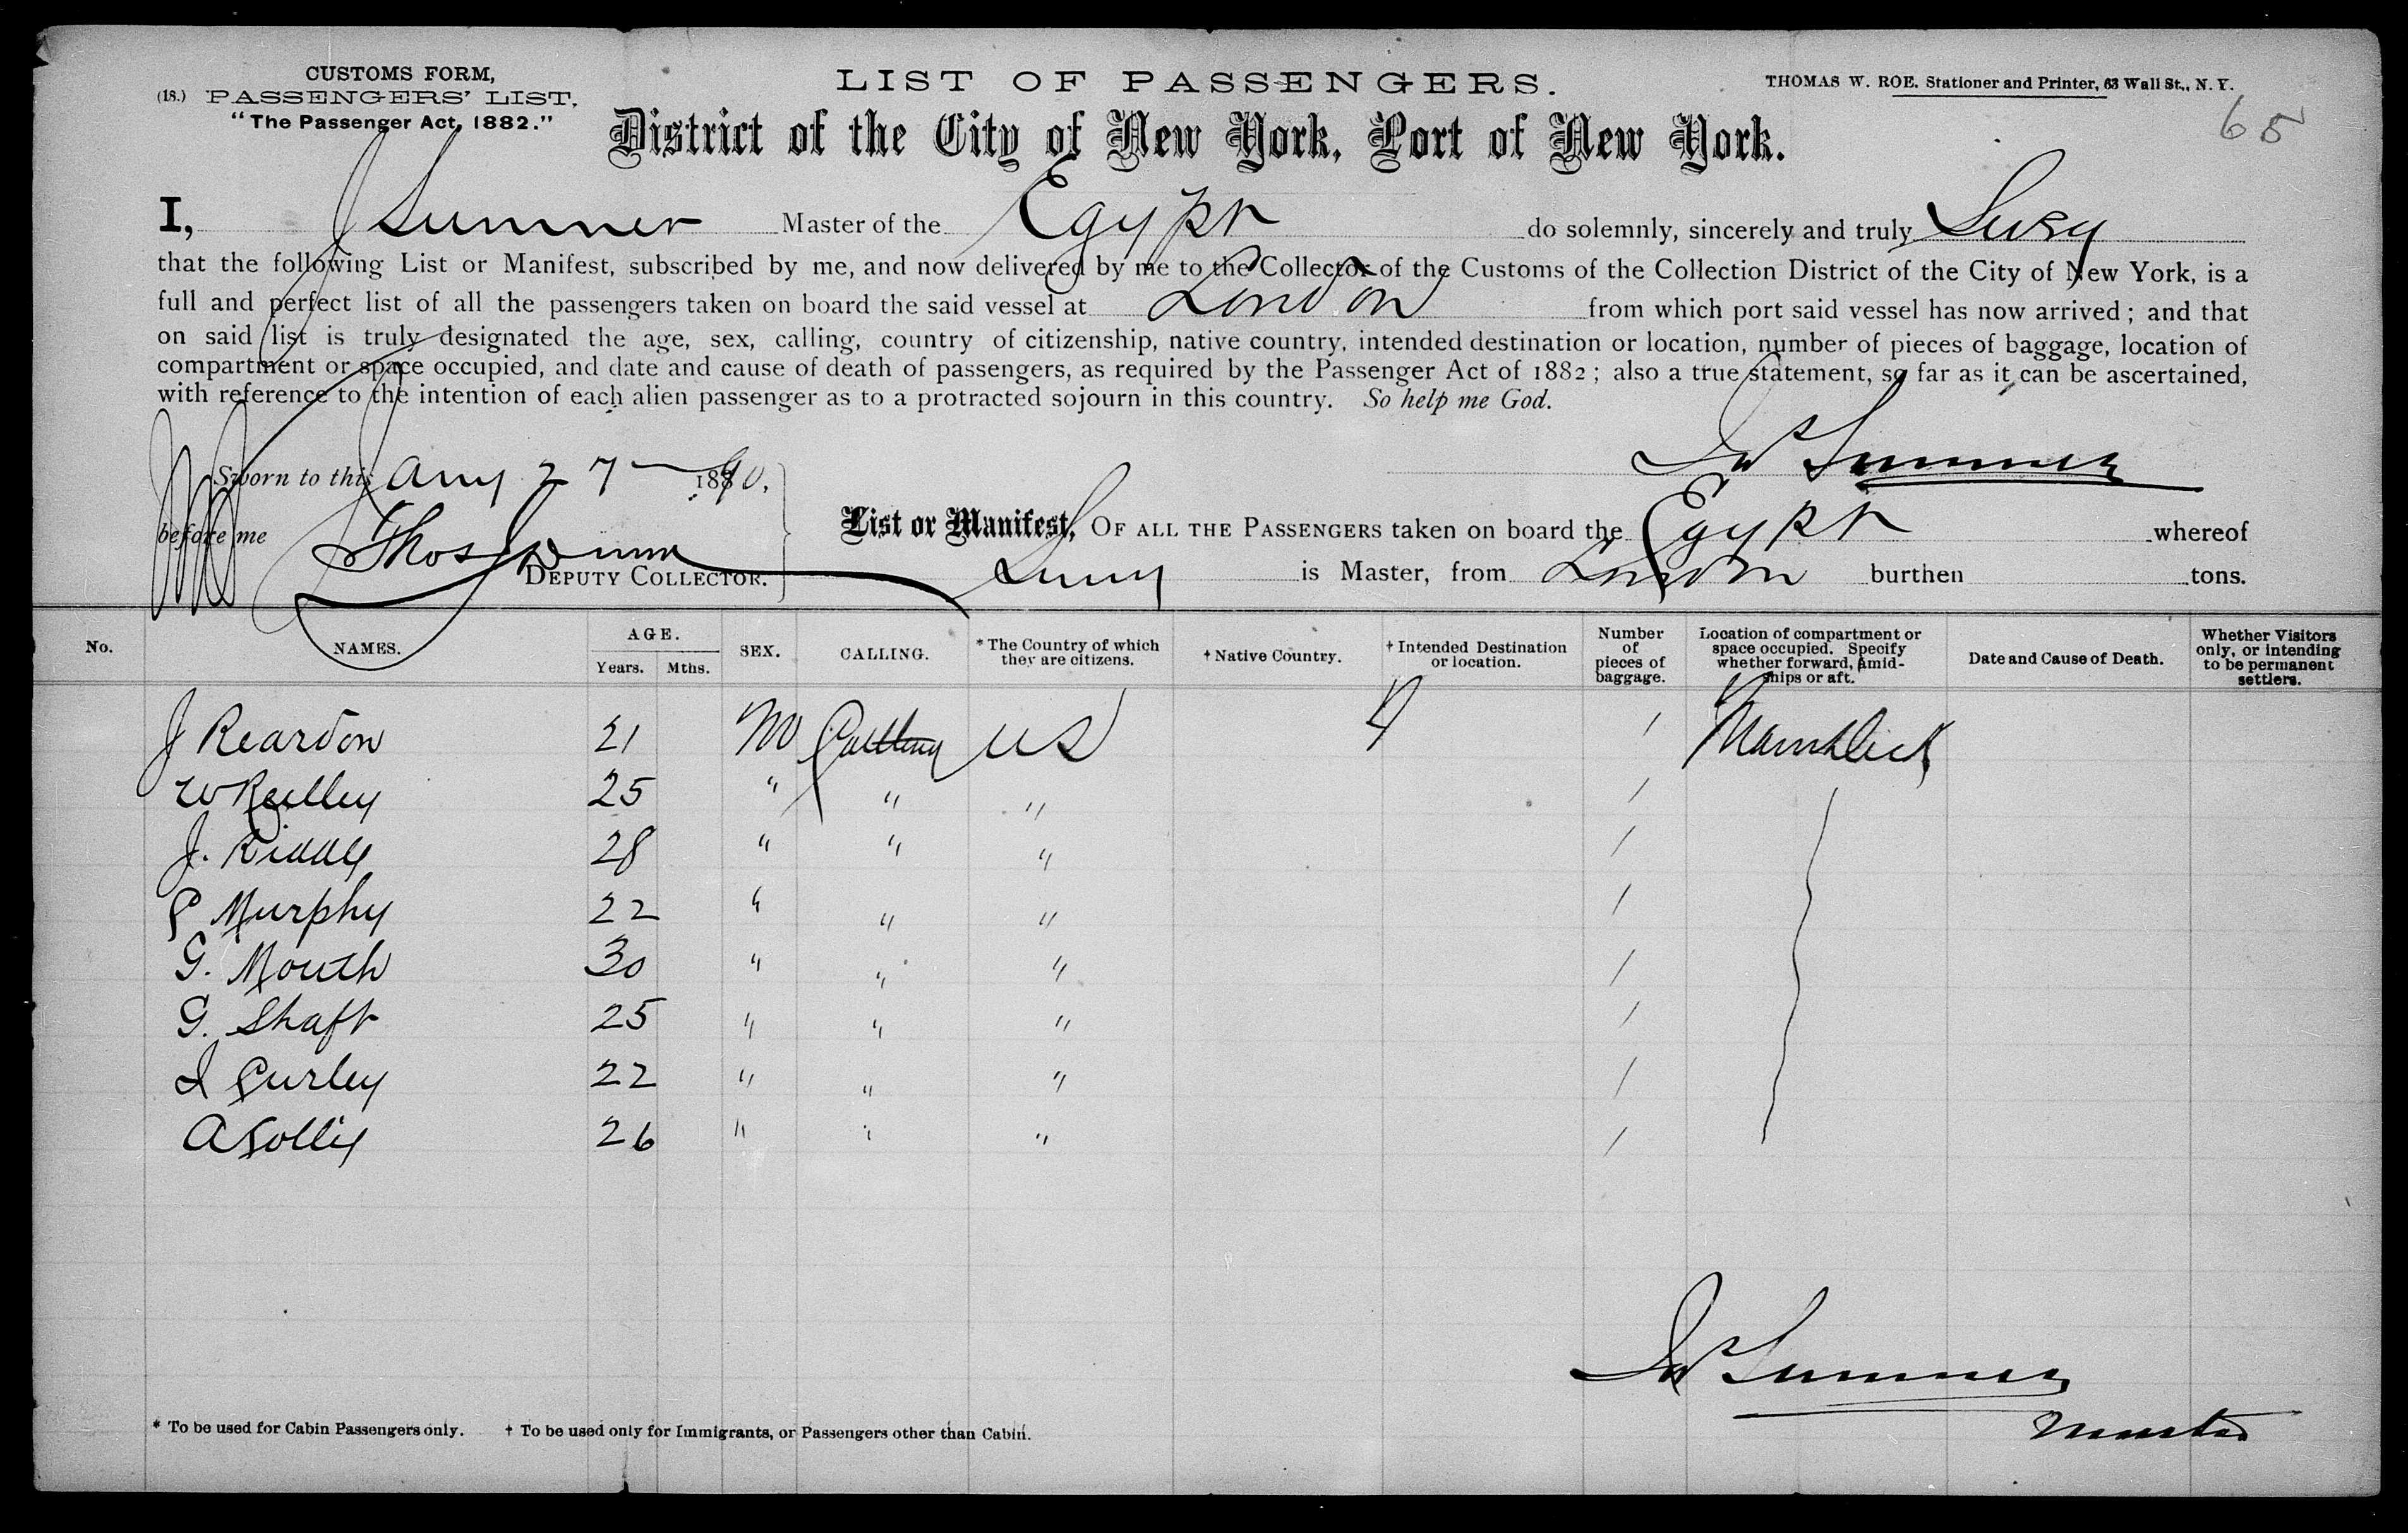 CUSTOMS FORM,
(18.) PASSENGERS' LIST,
"The Passenger Act, 1882."
LIST OF PASSENGERS.
THOMAS W. ROE. Stationer and Printer, 63 Wall St., N. Y.
65
District of the City of New York, Port of New York.
I, J Sumner Master of the Egypt do solemnly, sincerely and truly Swear
that the following List or Manifest, subscribed by me, and now delivered by me to the Collector of the Customs of the Collection District of the City of New York, is a
full and perfect list of all the passengers taken on board the said vessel at London from which port said vessel has now arrived; and that
on said list is truly designated the age, sex, calling, country of citizenship, native country, intended destination or location, number of pieces of baggage, location of
compartment or space occupied, and date and cause of death of passengers, as required by the Passenger Act of 1882; also a true statement, so far as it can be ascertained,
with reference to the intention of each alien passenger as to a protracted sojourn in this country. So help me God.
Sumner
Sworn to this Jany 27 1890.
before me Thos Dunn
DEPUTY COLLECTOR.
List or Manifest, OF ALL THE PASSENGERS taken on board the Egypt whereof
is Master, from London burthen tons.
No. NAMES. AGE. Years. Mths. SEX. CALLING. * The Country of which they are citizens. † Native Country. † Intended Destination or location. Number of pieces of baggage. Location of compartment or space occupied. Specify whether forward, amidships or aft. Date and Cause of Death. Whether Visitors only, or intending to be permanent settlers.
J Reardon 21 M Cattleman US 1
W Reilley 25 " " " 1
J. Riddle 28 " " " 1
P Murphy 22 " " " 1
G. Mouth 30 " " " 1
G. Shaft 25 " " " 1
J Curley 22 " " " 1
A Sollis 26 " " " 1
Sumner
Master
* To be used for Cabin Passengers only. † To be used only for Immigrants, or Passengers other than Cabin.